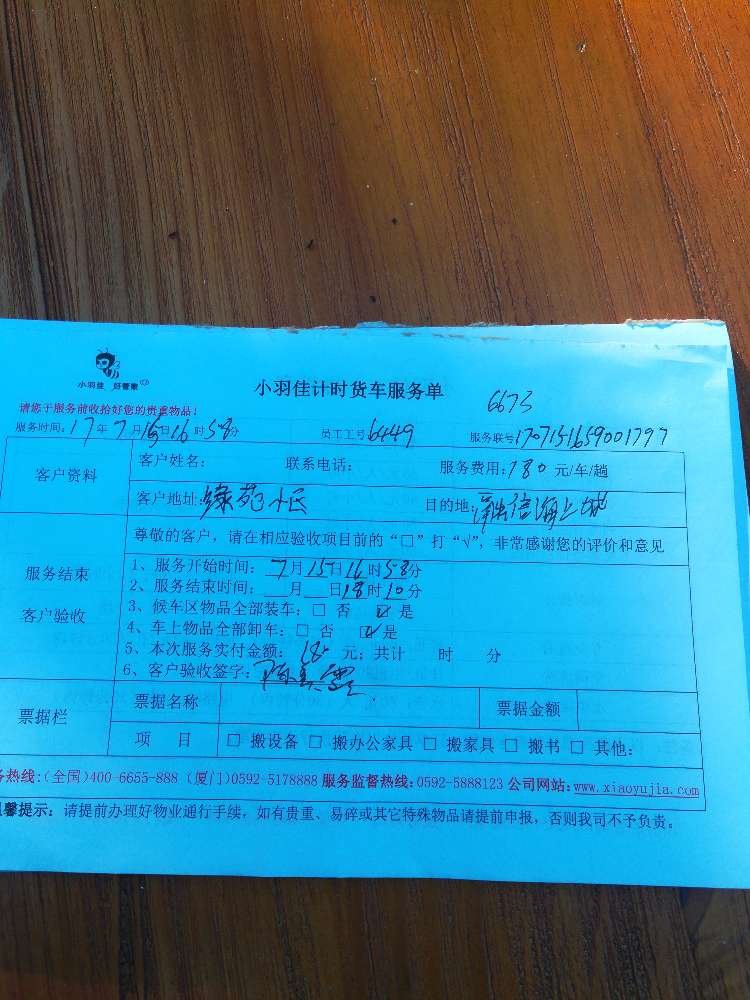 小羽佳 好管家
小羽佳计时货车服务单
6673
请您于服务前收拾好您的贵重物品！
服务时间：17年7月15日16时58分 员工工号6449 服务联号1707151659001797
客户资料
客户姓名： 联系电话： 服务费用：180 元/车/趟
客户地址：绿苑小区 目的地： 海上城
尊敬的客户，请在相应验收项目前的“□”打“√”，非常感谢您的评价和意见
服务结束
客户验收
1、服务开始时间：7月15日16时58分
2、服务结束时间：__月__日18时10分
3、候车区物品全部装车：□ 否 ☑ 是
4、车上物品全部卸车：□ 否 ☑ 是
5、本次服务实付金额： 元；共计 时 分
6、客户验收签字：
票据栏
票据名称 票据金额
项 目 □ 搬设备 □ 搬办公家具 □ 搬家具 □ 搬书 □ 其他：
务热线：(全国)400-6655-888 (厦门)0592-5178888 服务监督热线：0592-5888123 公司网站：www.xiaoyujia.com
温馨提示：请提前办理好物业通行手续，如有贵重、易碎或其它特殊物品请提前申报，否则我司不予负责。